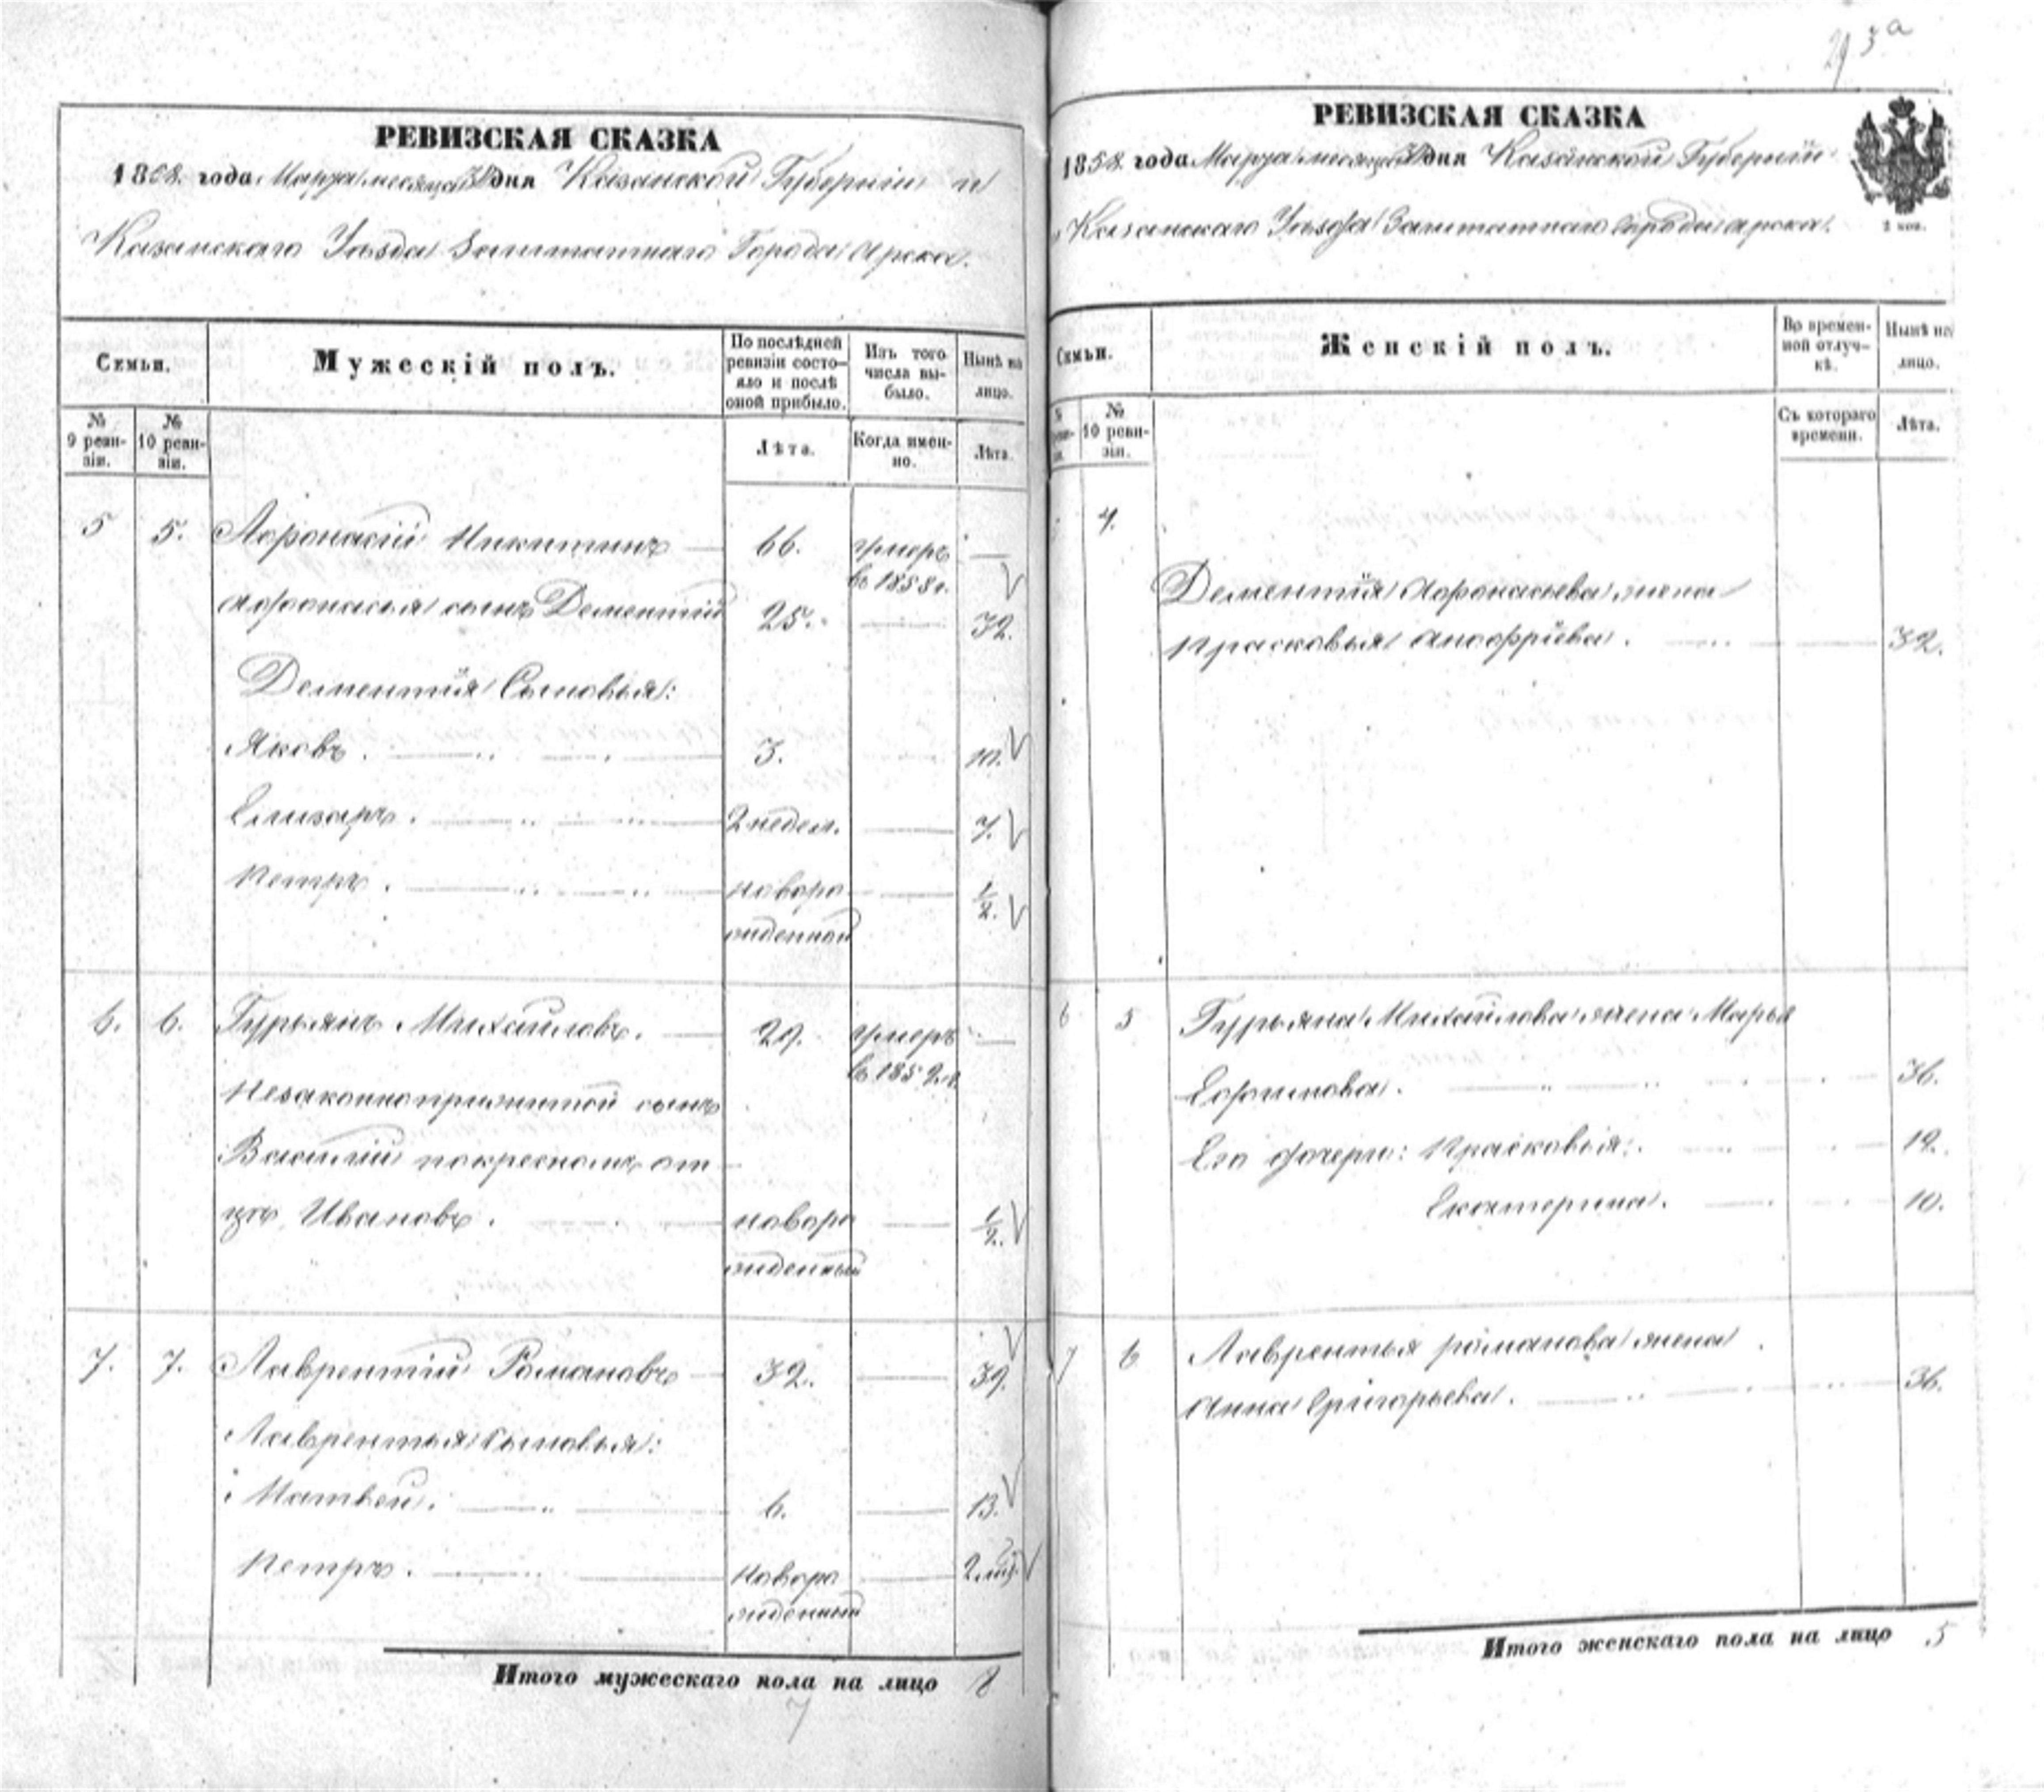 293а
РЕВИЗСКАЯ СКАЗКА
1858. года Марта месяца дня Казанской Губернiи и
Казанскаго Уѣзда Заштатнаго Города Арска.
Семьи.
Мужескiй полъ.
По послѣдней ревизiи состояло и послѣ оной прибыло.
Изъ того числа выбыло.
Нынѣ на лицо.
№ 9 ревизiи.
№ 10 ревизiи.
Лѣта.
Когда именно.
Лѣта.
5 5. Афонасiй Никитинъ 66. умеръ —
въ 1858 г.
Афонасья сынъ Дементiй 25. — 32.
Дементiя Сыновья:
Яковъ. 3. 10.
Елизаръ. 2 недел. — 7.
Петръ. новоро — 1/2.
жденной
6. 6. Гурьянъ Михайловъ. 29. умеръ —
въ 1852 г.
Незаконноприжитой сынъ
Василiй покресномъ от
цѣ Ивановъ. новоро — 1/2.
жденный
7. 7. Лаврентiй Романовъ 32. — 39.
Лаврентья сыновья:
Матвей. 6. — 13.
Петръ. новоро — 2 мц.
жденный
Итого мужескаго пола на лицо 8
7
РЕВИЗСКАЯ СКАЗКА
1858. года Марта месяца дня Казанской Губернiи
Казанскаго Уѣзда Заштатнаго города Арска.
2 коп.
Семьи.
Женскiй полъ.
Во временной отлучкѣ.
Нынѣ на лицо.
№ 10 ревизiи.
Съ котораго времени.
Лѣта.
4.
Дементiя Афонасьева жена
Прасковья Анофрiева. 32.
6 5 Гурьяна Михайлова жена Марья
Ефимова. 36.
Его дочери: Прасковья: 12.
Екатерина. 10.
7 6 Лаврентья романова жена
Анна Григорьева. 36.
Итого женскаго пола на лицо 5